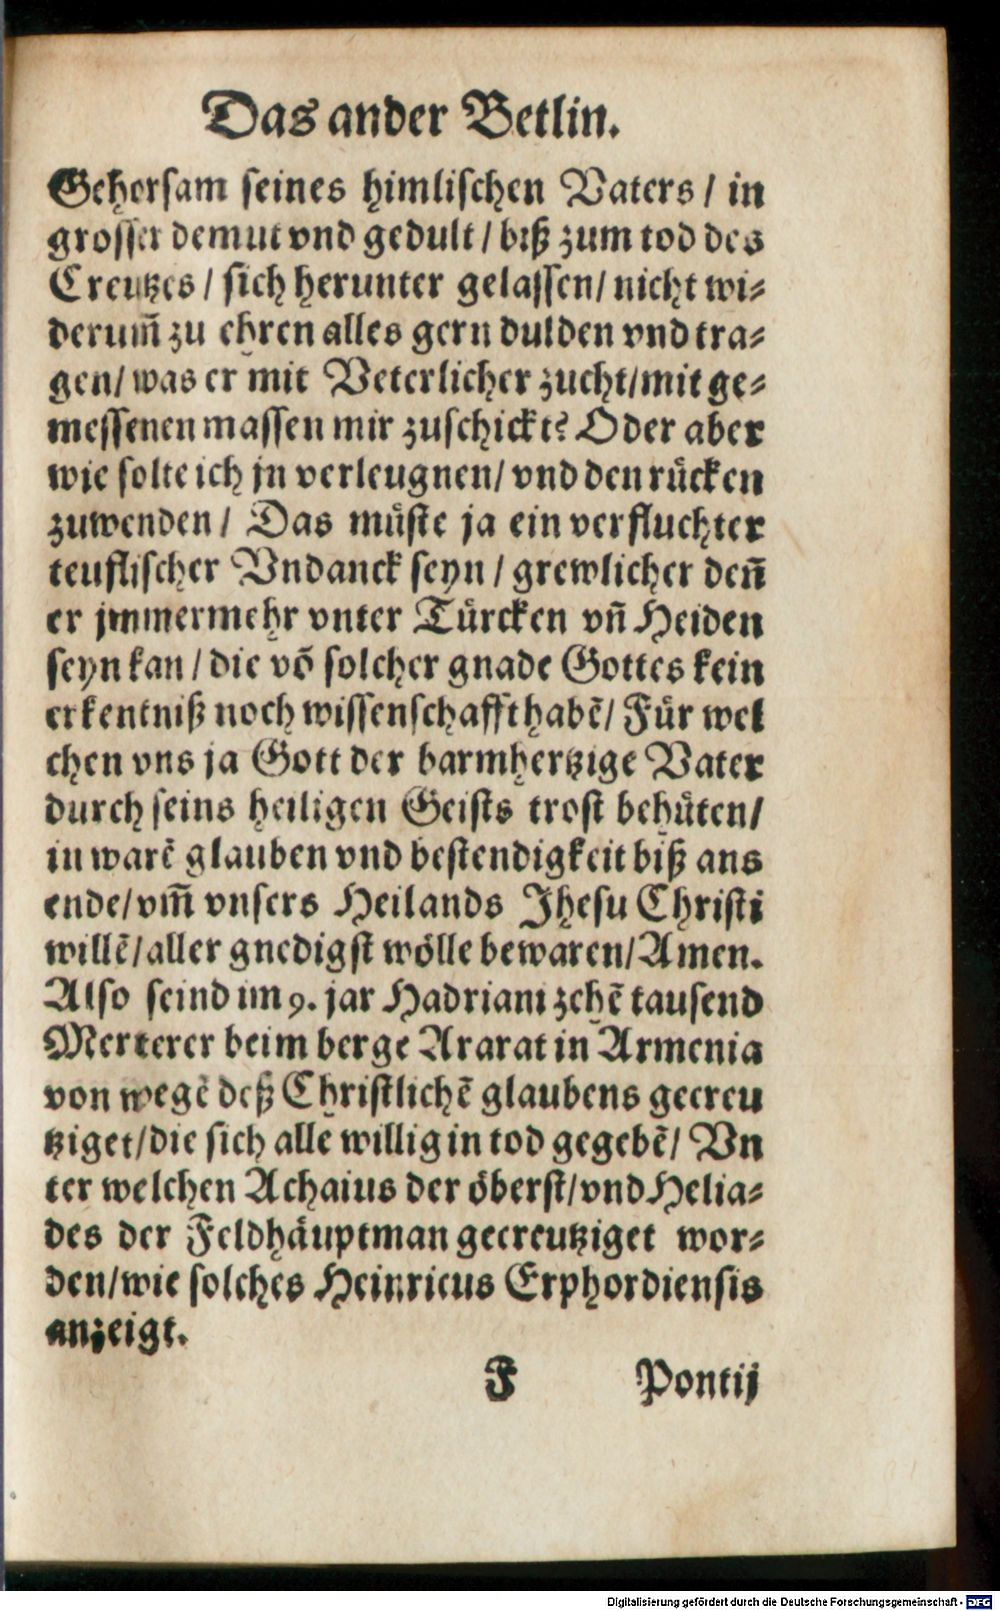 Das ander Betlin.
Gehorsam seines himlischen Vaters / in
grosser demut vnd gedult / biß zum tod des
Creutzes / sich herunter gelassen / nicht wi-
derum̃ zu ehren alles gern dulden vnd tra-
gen / was er mit Veterlicher zucht / mit ge-
messenen massen mir zuschickt? Oder aber
wie solte ich jn verleugnen / vnd den rücken
zuwenden / Das müste ja ein verfluchter
teuflischer Vndanck seyn / grewlicher deñ
er jmmermehr vnter Türcken vñ Heiden
seyn kan / die võ solcher gnade Gottes kein
erkentniß noch wissenschafft habẽ / Für wel
chen vns ja Gott der barmhertzige Vater
durch seins heiligen Geists trost behüten /
in warẽ glauben vnd bestendigkeit biß ans
ende / vm̃ vnsers Heilands Jhesu Christi
willẽ / aller gnedigst wölle bewaren / Amen.
Also seind im 9. jar Hadriani zehẽ tausend
Merterer beim berge Ararat in Armenia
von wegẽ deß Christlichẽ glaubens gecreu
tziget / die sich alle willig in tod gegebẽ / Vn
ter welchen Achaius der öberst / vnd Helia-
des der Feldhäuptman gecreutziget wor-
den / wie solches Heinricus Erphordiensis
anzeigt.
F Pontij
Digitalisierung gefördert durch die Deutsche Forschungsgemeinschaft - DFG